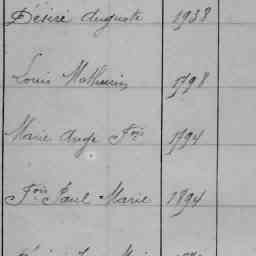 Désiré Auguste 1938
Louis Mathurin 1798
Marie Ange Fois 1794
Fois Paul Marie 1894